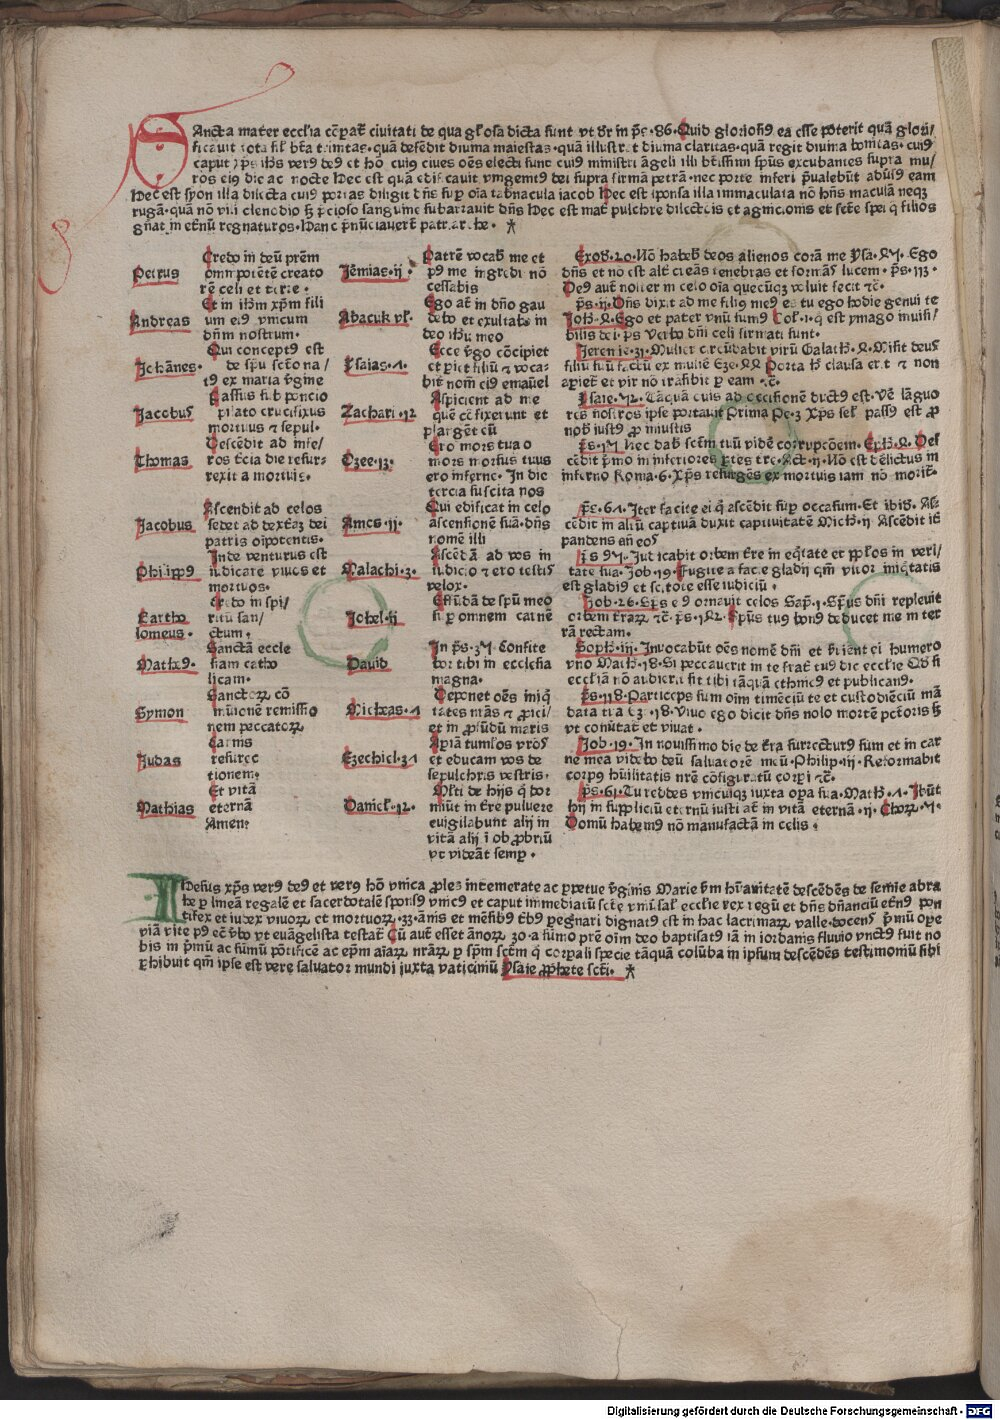 SAncta mater ecclīa cōpat̄ ciuitati de qua gl'osa dicta sunt vt dr̄ in ps̄·86·Quid gloriosiꝰ ea esse poterit quā glori/
ficauit tota sil' btā trinitas·quā defēdit diuina maiestas·quā illustrat diuina claritas·quā regit diuina bonitas·cuiꝰ
caput xp̄s ih̄s verꝰ deꝰ et hō cuiꝰ ciues oēs electi sunt cuiꝰ ministri āgeli illi btissimi spūs excubantes supra mu/
ros eiꝰ die ac nocte Hec est quā edificauit vnigenitꝰ dei supra firmā petrā·nec porte inferi p̄ualebūt aduersꝰ eam
Hec est syon illa dilecta cuiꝰ portas diligit dn̄s sup̄ oīa tabnacula iacob Hec est sponsa illa immaculata nō hn̄s maculā neqꝫ
rugā·quā nō vili clenodio s̄ p̄cioso sanguine subarrauit dn̄s Hec est mat̄ pulchre dilectōis et agnicionis et scte spei q̄ filios
gn̄at in etn̄ū regnaturos·Hanc p̄nūciauert̄ patriarche·
Petrus
Credo in deū prēm
omnipotētē creato
rē celi et terre·
Jēmias·ij·
Patrē vocab' me et
pꝰ me ingredi nō
cessabis
Exod'·20·Nō habeb' deos alienos corā me Ysa·47·Ego
dn̄s et nō est alt' creās tenebras et formās lucem·ps̄·113·
Deꝰ aut̄ noster in celo oīa quecūqꝫ voluit fecit ⁊c̄·
Andreas
Et in ih̄m xp̄m fili
um eiꝰ vnicum
dn̄m nostrum·
Abacuk vl'·
Ego at̄ in dn̄o gau
debo et exultabo in
deo ih̄u meo
ps̄·ij·Dn̄s dixit ad me filiꝰ meꝰ es tu ego hodie genui te
Joh̄·Ego et pater vnū sumꝰ Col'·1·q̄ est ymago inuisi/
bilis dei·ps̄ Verbo dn̄i celi firmati sunt·
Johānes·
Qui conceptꝰ est
de spū scto na/
tꝰ ex maria v̄gine
Ysaias·7·
Ecce v̄go cōcipiet
et p̄iet filiū et voca-
bit nom̄ eiꝰ emaūel
Jeremie·31·Mulier circūdabit virū Galath̄·4·Misit deus
filiū suū factū ex muliē Eze·44 Porta h̄ clausa erit et non
apiet̄ et vir nō trāsibit p̄ eam ⁊c̄·
Jacobus
Passus sub poncio
pilato crucifixus
mortuus et sepul·
Zachari·12
Aspicient ad me
quē cōfixerunt et
plangēt eū
Ysaie·53·Tāquā ouis ad occisionē ductꝰ est·Vē lāguo
res nostros ipse portauit Prima Pe·3 Xp̄s sel' passꝰ est p̄
nob' iustꝰ p̄ iniustis
Thomas
Descēdit ad infe/
ros tcia die resur-
rexit a mortuis·
Ozee·13·
Ero mors tua o
mors morsus tuus
ero inferne·In die
tercia suscita nos
ps̄·15 Nec dab' sctm̄ tuū videre corrupcōem·Eph̄·4·Des
cēdit p̄mo in inferiores ptes tre·Act·ij·Nō est delictus in
inferno Roma·6·Xp̄s resurgēs ex mortuis iam nō morit̄·
Jacobus
Ascendit ad celos
sedet ad dexteraꝫ dei
patris oīpotentis·
Amos·ij·
Qui edificat in celo
ascensionē suā·dn̄s
nomē illi
ps̄·67·Iter facite ei q̄ ascēdit sup̄ occasum·Et ibid'·As-
cēdit in altū captiuā duxit captiuitatē Mich̄·ij Ascēdit it̄
pandens añ eos
Philippꝰ
Inde venturus est
iudicare viuos et
mortuos·
Malachi·3·
Ascēdā ad vos in
iudicio et ero testis
velox·
ps̄ 95·Iudicabit orbem tr̄e in eq̄tate et pp̄los in veri/
tate sua·Job·19·Fugite a facie gladij qm̄ vltor iniq̄tatis
est gladiꝰ et scitote esse iudiciū·
Bartho
lomeus·
Credo in spi/
ritū san/
ctum·
Johel·ij
Effūdā de spū meo
sup̄ omnem carnē
Job·26·Spūs eꝰ ornauit celos Sap·1·Spūs dn̄i repleuit
orbem tr̄aꝝ ⁊c̄·ps̄·142·Spūs tuꝰ bonꝰ deducet me in ter
rā rectam·
Matheꝰ·
Sanctā eccle
siam catho
licam·
Dauid
In ps̄·34·Confite
bor tibi in ecclesia
magna·
Soph̄·iij·Inuocabūt oēs nomē dn̄i et seruient ei humero
vno Math̄·18·Si peccauerit in te frat̄ tuꝰ dic ecclie Qd' si
eccliā nō audierit sit tibi tāquā ethnicꝰ et publicanꝰ·
Symon
Sanctoꝝ cō
munionē remissio
nem peccatoꝝ
Micheas·7
Deponet oēs iniq̄
tates nr̄as et proici/
et in p̄fūdū maris
ps̄·118·Particeps sum oīm timēciū te et custodiēciū mā
data tua Eꝫ·18·Viuo ego dicit dn̄s nolo mortē pctoris s̄
vt conutat̄ et viuat·
Judas
Carnis
resurrec
tionem·
Ezechiel·37
Apiā tumlos vros
et educam vos de
sepulchris vestris·
Job·19·In nouissimo die de tr̄a surrecturꝰ sum et in car
ne mea videbo deū saluatorē meū·Philip·iij·Reformabit
corpꝰ hūilitatis nr̄e cōfiguratū corpi ⁊c̄·
Mathias
Et vitā
eternā
Amen·
Daniel·12·
Ml'ti de hijs q̄ dor
miūt in tr̄e puluere
euigilabunt alij in
vitā alij ī obprobriū
vt videāt semp̄·
ps̄·61·Tu reddes vnicuiqꝫ iuxta opa sua·Math̄·7·Ibūt
hij in suppliciū eternū iusti aūt in vitā eternā·ij·Choꝝ·5·
Domū habemꝰ nō manufactā in celis·
IHesus xp̄s verꝰ deꝰ et verꝰ hō vnica p̄les intemerate ac ppetue v̄ginis Marie scdm hūanitatē descēdēs de semie abra
he p̄ lineā regalē et sacerdotalē sponsꝰ vnicꝰ et caput immediatū scte vniusal' ecclie rex regū et dn̄s dn̄anciū etn̄ꝰ pon
tifex et iudex viuoꝝ et mortuoꝝ·33·ānis et mēsibꝰ tbꝰ pegrinari dignatꝰ est in hac lacrimaꝝ valle·docens p̄mū ope
viā vite pꝰ ec̄ v̄bo vt euāgelista testat̄ Cū aut̄ esset ānoꝝ 30·a sūmo prē oīm deo baptisatꝰ iā in iordanis fluuio vnctꝰ fuit no
bis in p̄mū ac sūmū pōtificē ac ep̄m aīaꝝ nr̄aꝝ p̄ spm̄ sctm̄ q̄ corpali specie tāquā colūba in ipsum descēdēs testimoniū sibi
phibuit qm̄ ipse est vere saluator mundi iuxta vaticiniū Ysaie pp̄hete scti·
Digitalisierung gefördert durch die Deutsche Forschungsgemeinschaft - DFG